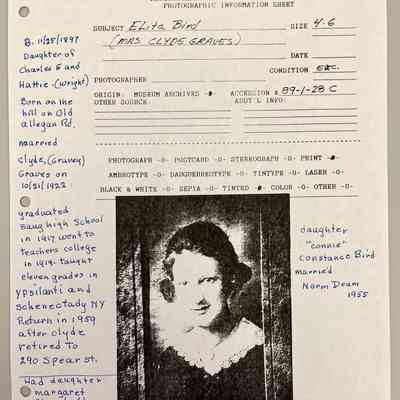 PHOTOGRAPHIC INFORMATION SHEET
SUBJECT ELita Bird SIZE 4-6
(MRS. CLYDE GRAVES)
DATE
CONDITION Exc.
PHOTOGRAPHER
ORIGIN: MUSEUM ARCHIVES -0- ACCESSION # 89-1-28 C
OTHER SOURCE: ADDT'L INFO:
PHOTOGRAPH -0- POSTCARD -0- STEREOGRAPH -0- PRINT -0-
AMBROTYPE -0- DAUGUERREOTYPE -0- TINTYPE -0- LASER -0-
BLACK & WHITE -0- SEPIA -0- TINTED -0- COLOR -0- OTHER -0-
B. 11/25/1897
Daughter of
Charles E and
Hattie-(Wright)
Born on the
hill on Old
allegan Rd.
married
Clyde, (Gravey)
Graves on
10/21/1922
graduated
Saug High School
in 1917 went to
teachers college
in 1919. taught
eleven grades in
ypsilanti and
Schenectady NY
Return in 1959
after Clyde
retired To
290 Spear St.
Had daughter
margaret
daughter
"connie"
Constance Bird
married
Norm Deam
1955